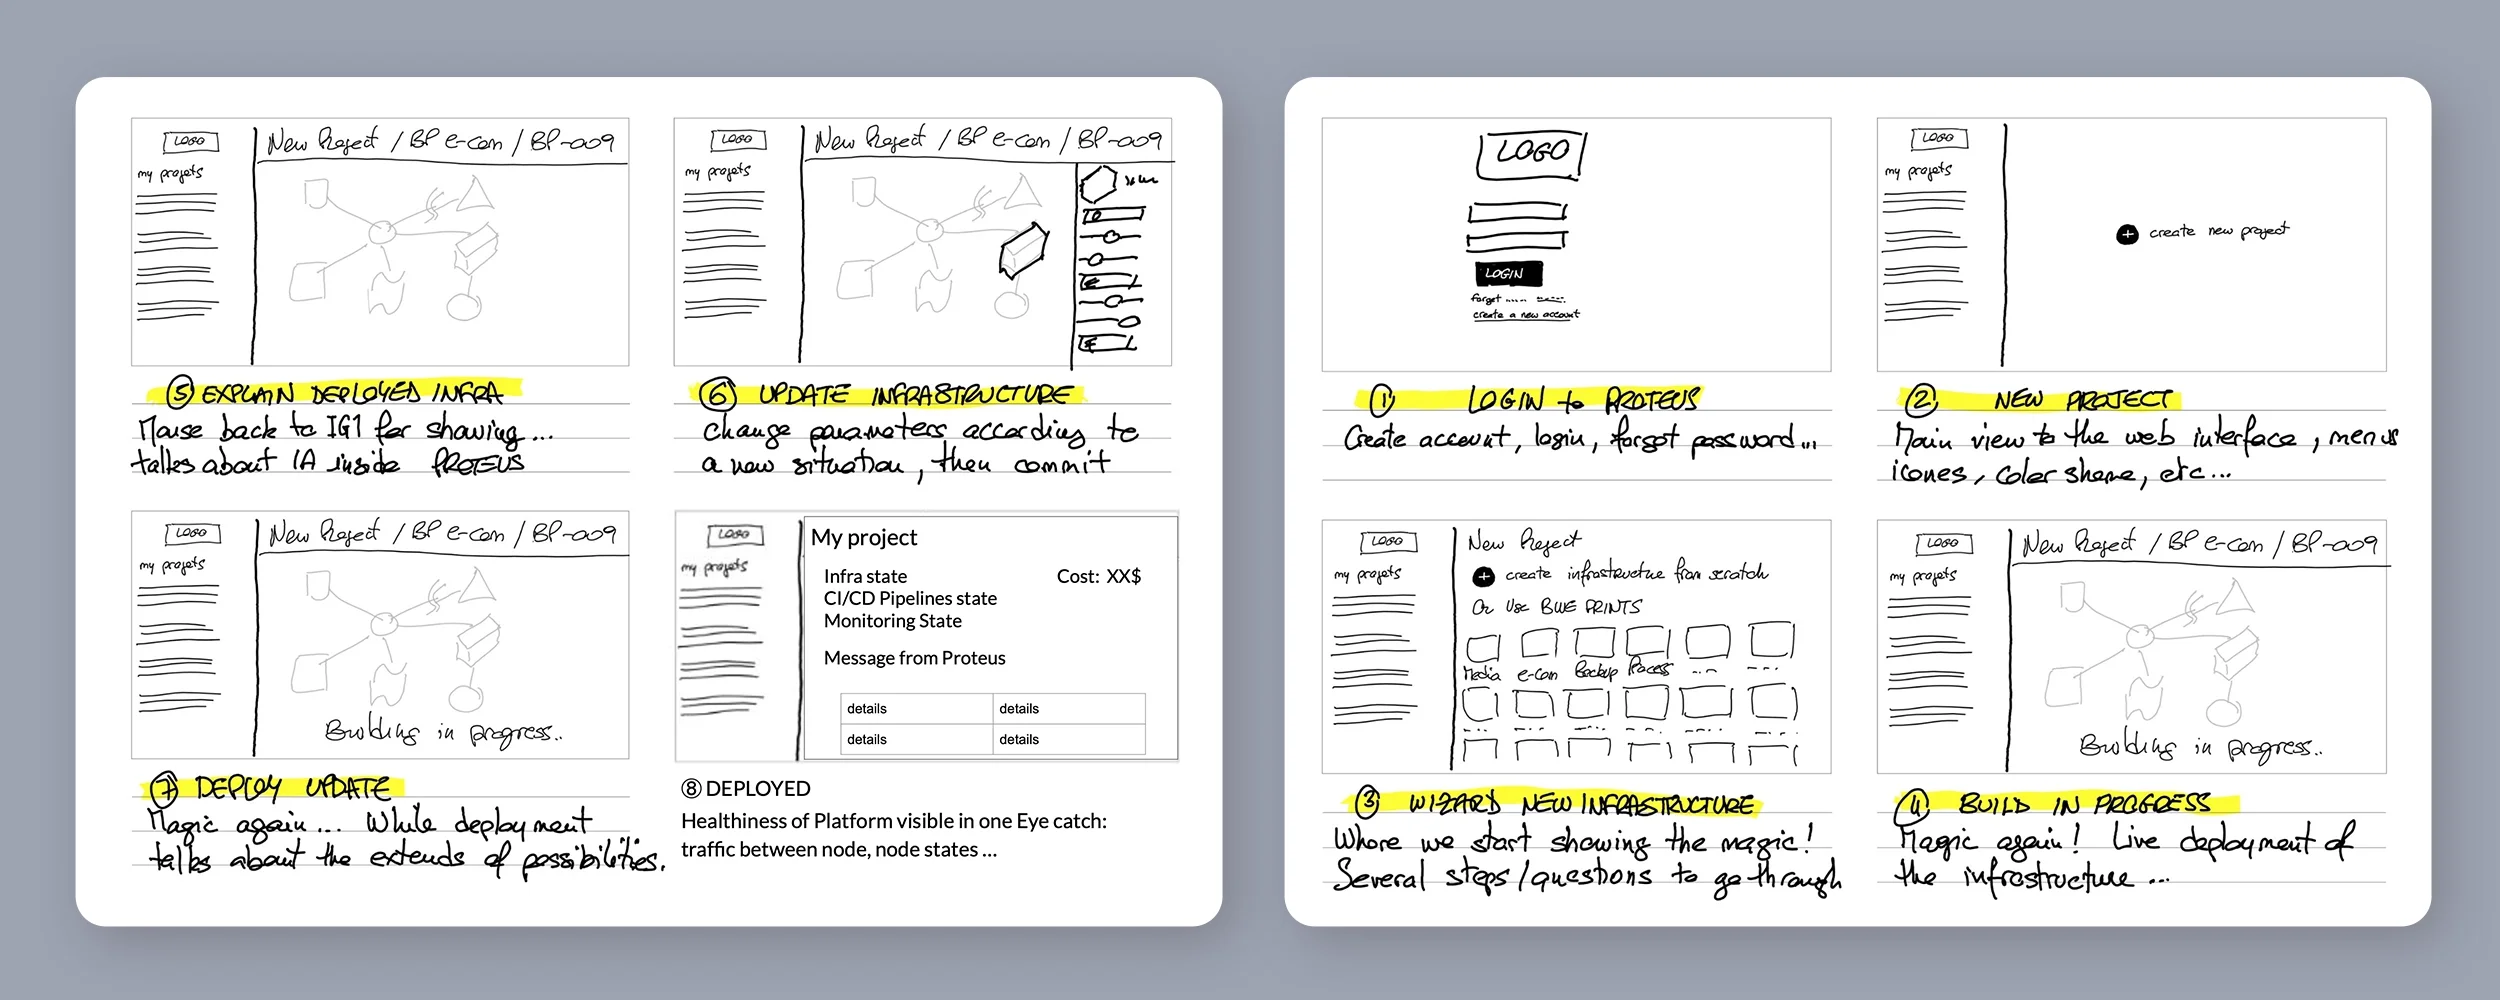 LOGO
my projets
New Project / BP e-com / BP-009
⑤ EXPLAIN DEPLOYED INFRA
Mouse back to IG1 for showing...
talks about IA inside PROTEUS
LOGO
my projets
New Project / BP e-com / BP-009
⑥ UPDATE INFRASTRUCTURE
change parameters according to
a new situation, then commit
LOGO
my projets
New Project / BP e-com / BP-009
Building in progress..
⑦ DEPLOY UPDATE
Magic again... While deployment
talks about the extends of possibilities.
LOGO
my projets
My project
Infra state
Cost: XX$
CI/CD Pipelines state
Monitoring State
Message from Proteus
details details
details details
⑧ DEPLOYED
Healthiness of Platform visible in one Eye catch:
traffic between node, node states ...
LOGO
LOGIN
forget
create a new account
① LOGIN to PROTEUS
Create account, login, forgot password...
LOGO
my projets
+ create new project
② NEW PROJECT
Main view to the web interface, menus
icones, color sheme, etc...
LOGO
my projets
New Project
+ create infrastructure from scratch
Or Use BLUE PRINTS
Media e-com Backup Process
③ WIZARD NEW INFRASTRUCTURE
Where we start showing the magic!
Several steps/questions to go through
LOGO
my projets
New Project / BP e-com / BP-009
Building in progress..
④ BUILD IN PROGRESS
Magic again! Live deployment of
the infrastructure ...